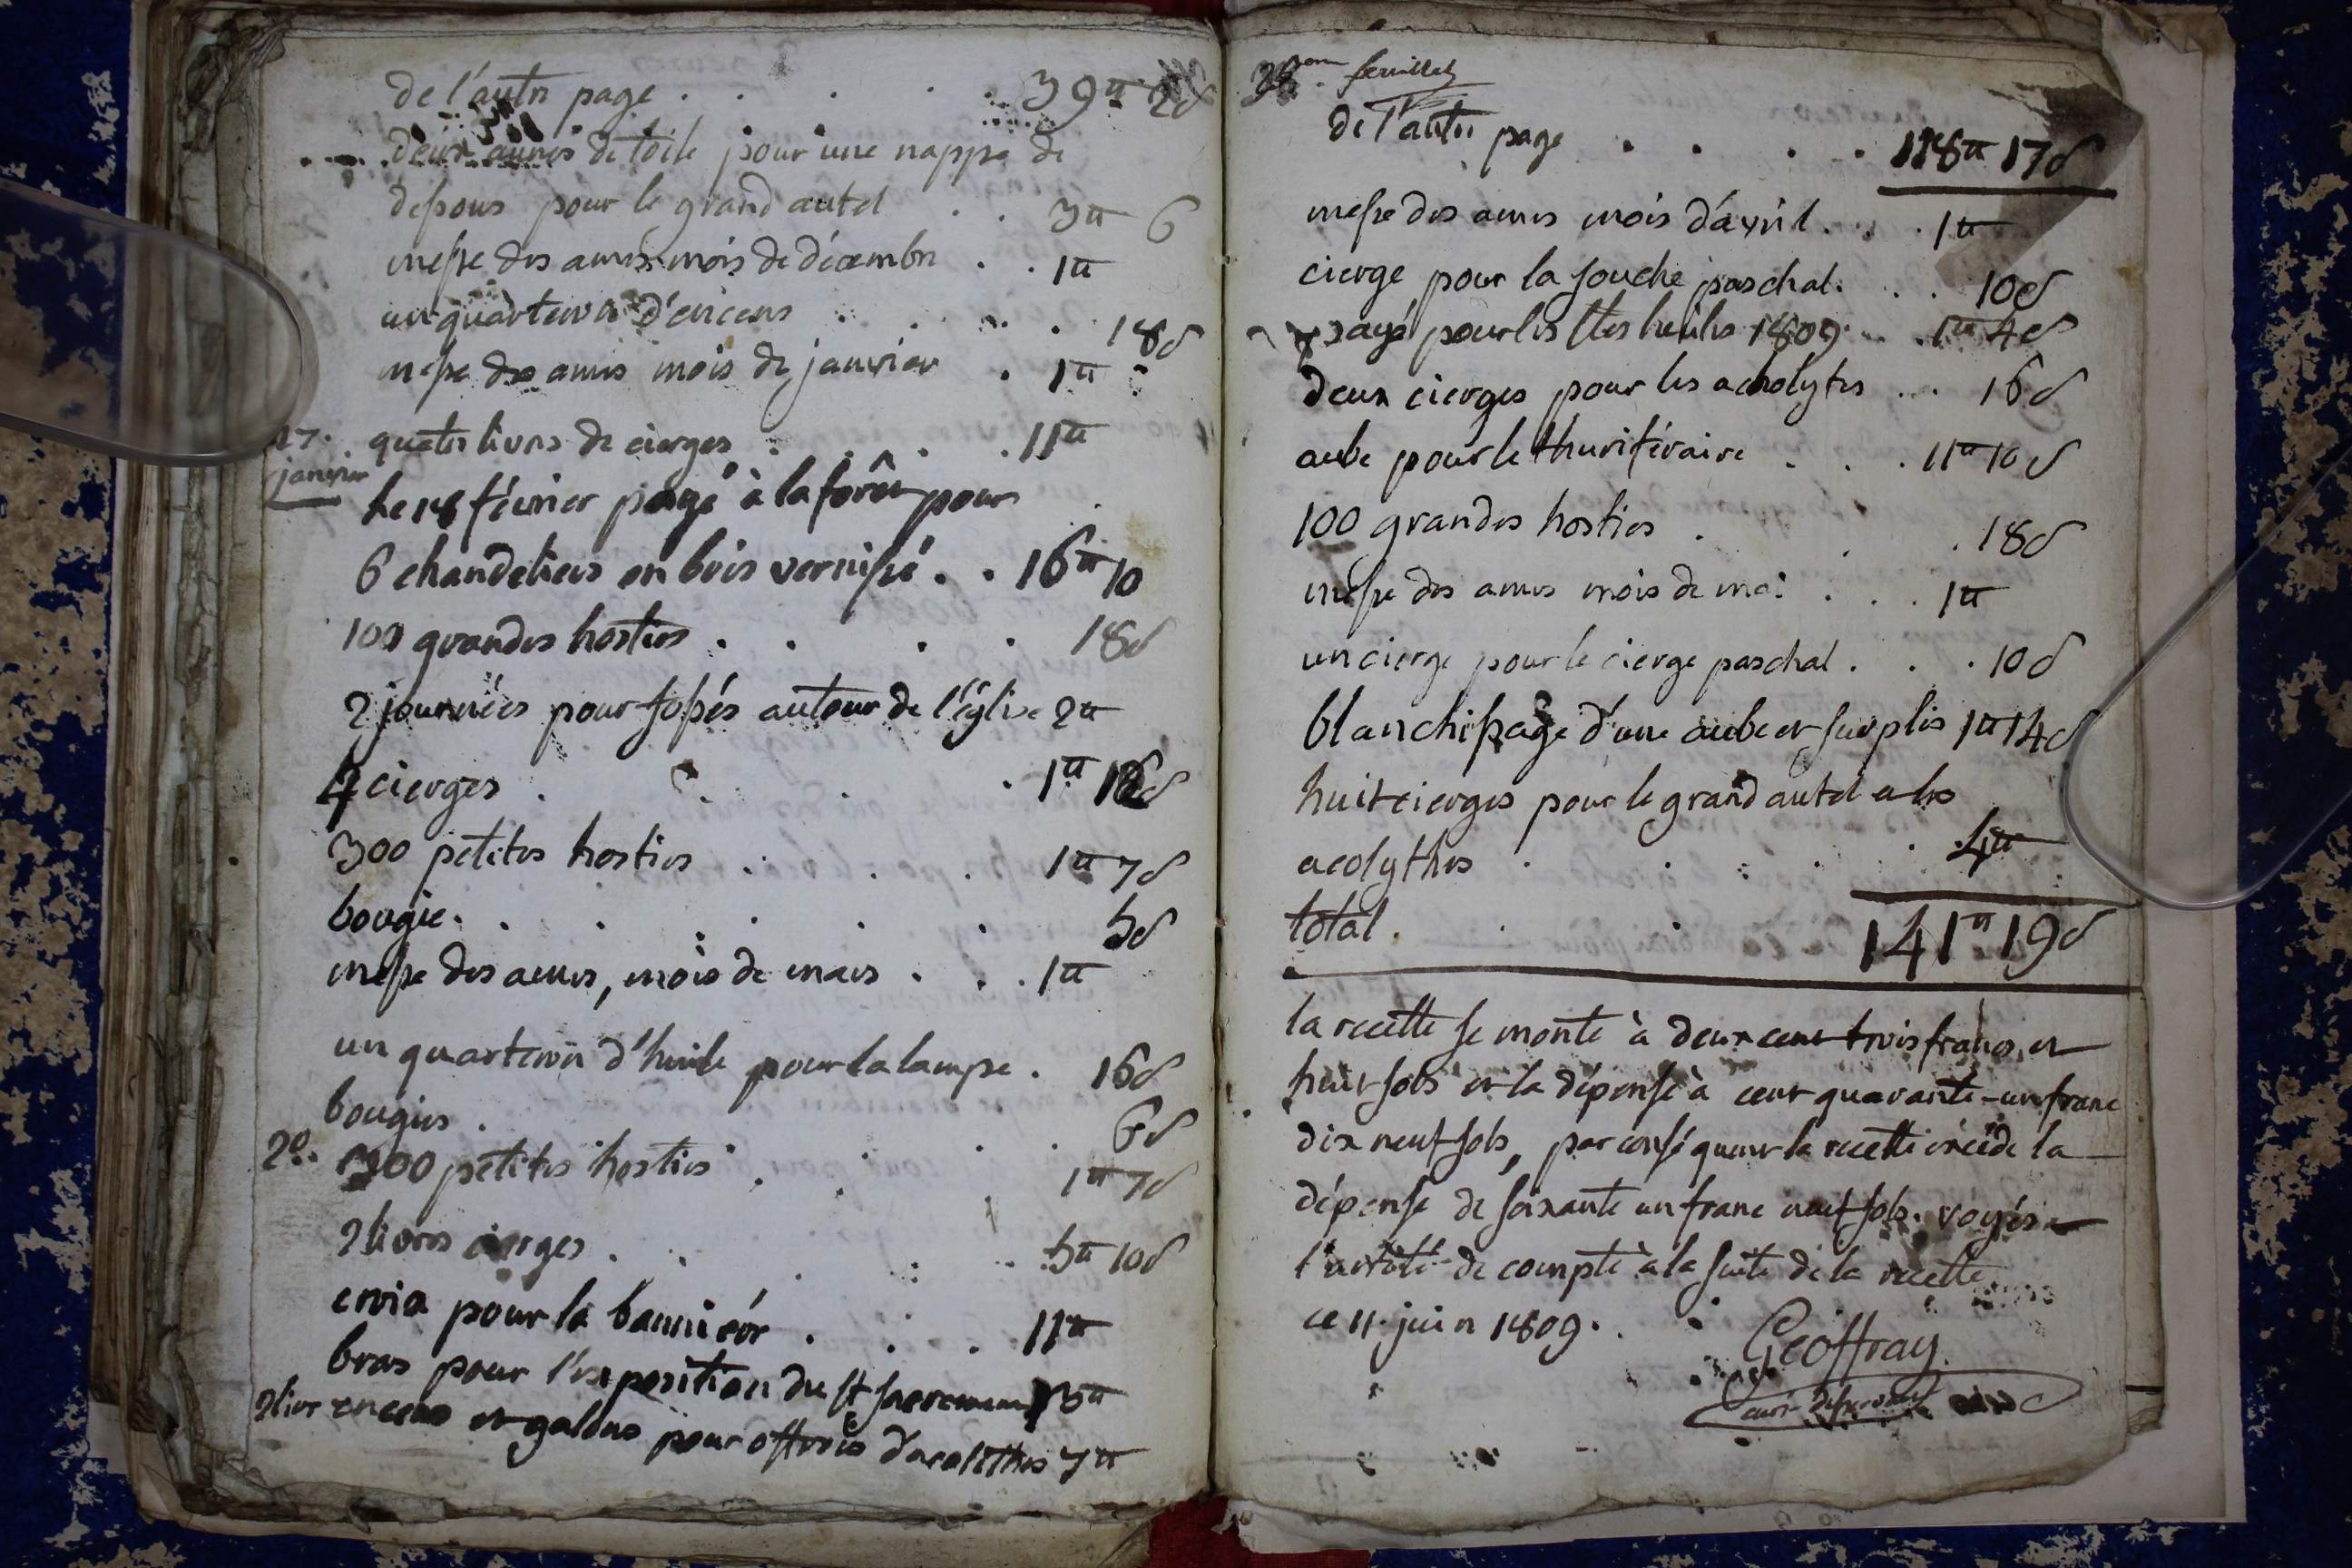 de l'autre page . . . . 39 ₶ 2 s
deux aunes de toile pour une nappe de
dessous pour le grand autel . . 3 ₶ 6
messe des ames mois de décembre . . 1 ₶
un quarteron d'encens . . . . 18 s
messe des ames mois de janvier . 1 ₶
27. janvier
quatre livres de cierges . . . . 11 ₶
le 14 février payé à la forêt pour
6 chandeliers en bois vernissé . . 16 ₶ 10
100 grandes hosties . . . . 18 s
2 journées pour fossés autour de l'église 2 ₶
4 cierges . . . . 1 ₶ 16 s
300 petites hosties . . . 1 ₶ 7 s
bougie . . . . . 5 s
messe des ames, mois de mars . . . 1 ₶
un quarteron d'huile pour la lampe . 16 s
bougies . . . 6 s
20. 300 petites hosties . . . 1 ₶ 7 s
2 livres cierges . . . . 5 ₶ 10 s
croix pour la bannière . . . 11 ₶
bras pour l'exposition du st sacrement 13 ₶
encens et galons pour offrois d'acolithes 7 ₶
feuillet
de l'autre page . . . . 118 ₶ 17 s
messe des ames mois d'avril . . . 1 ₶
cierge pour la souche paschal . . . 10 s
payé pour les stes huiles 1809 . . 1 ₶ 4 s
deux cierges pour les acholytes . . . 16 s
aube pour le thuriféraire . . . 11 ₶ 10 s
100 grandes hosties . . . 18 s
messe des ames mois de mai . . . 1 ₶
un cierge pour le cierge paschal . . . 10 s
blanchissage d'une aube et surplis 1 ₶ 14 s
huit cierges pour le grand autel et les
acolythes . . . . 4 ₶
total . . . 141 ₶ 19 s
la recette se monte à deux cent trois francs et
huit sols et la dépense à cent quarante-un franc
dix neuf sols, par conséquent la recette excède la
dépense de soixante un franc neuf sols. voyés
l'arrêté de compte à la suite de la recette.
ce 11 juin 1809.
Geoffray
curé desservant